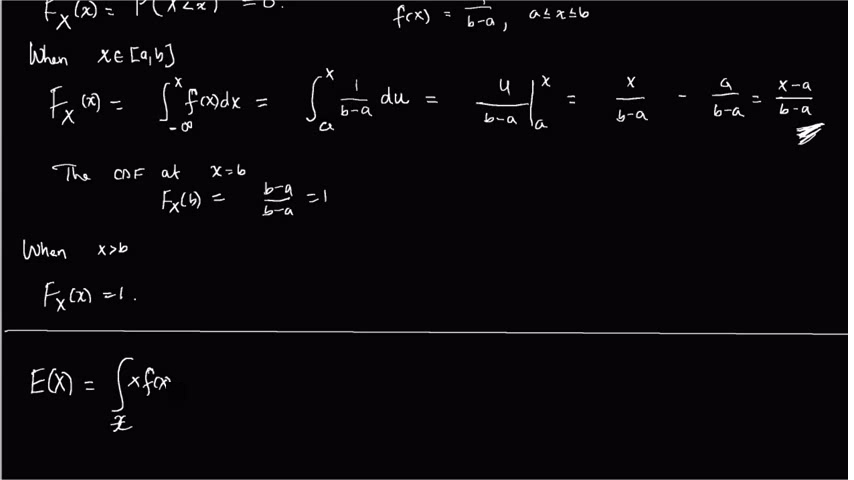 F_X(x) = P(X<x) = 0.
f(x) = 1/(b-a), a ≤ x ≤ b
When x ∈ [a,b]
F_X(x) = ∫_{-∞}^{x} f(x)dx = ∫_a^x 1/(b-a) du = u/(b-a) |_a^x = x/(b-a) - a/(b-a) = (x-a)/(b-a)
The CDF at x=b
F_X(b) = (b-a)/(b-a) = 1
When x>b
F_X(x) = 1.
E(X) = ∫_x x f(x)